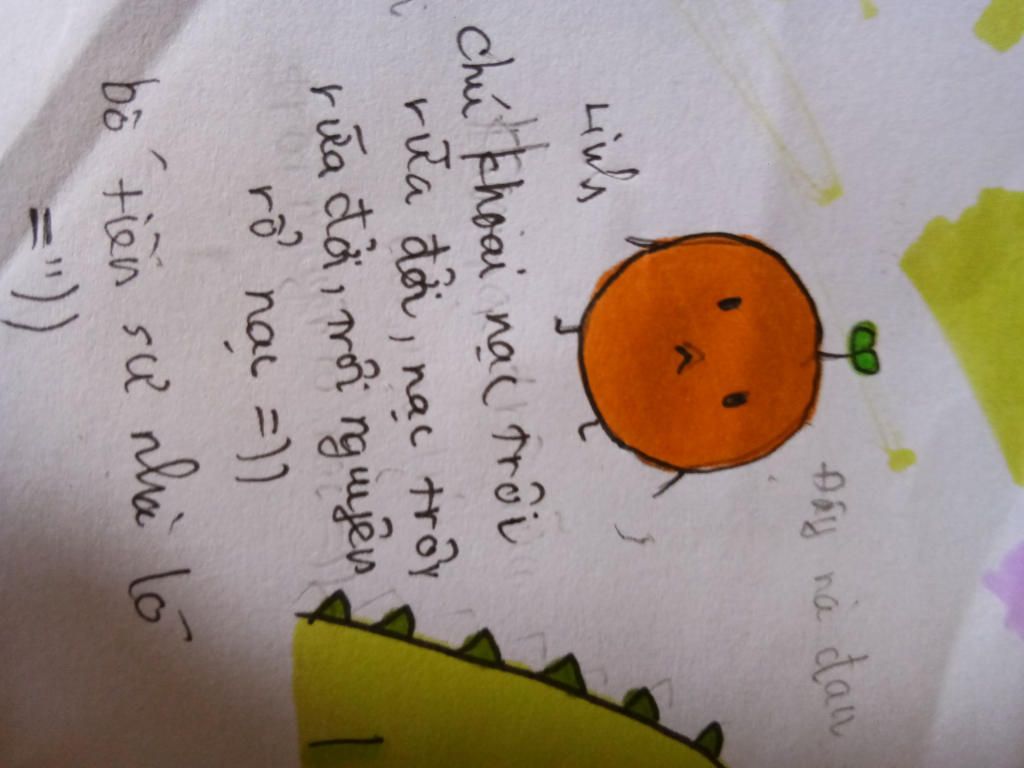 Đây nà đau
Linh
chú khoai nạc trôi
rữa đời, nạc trôi
rữa đời, trôi nguyên
rổ nạc =))
bố tiên sư nhà ló
="))